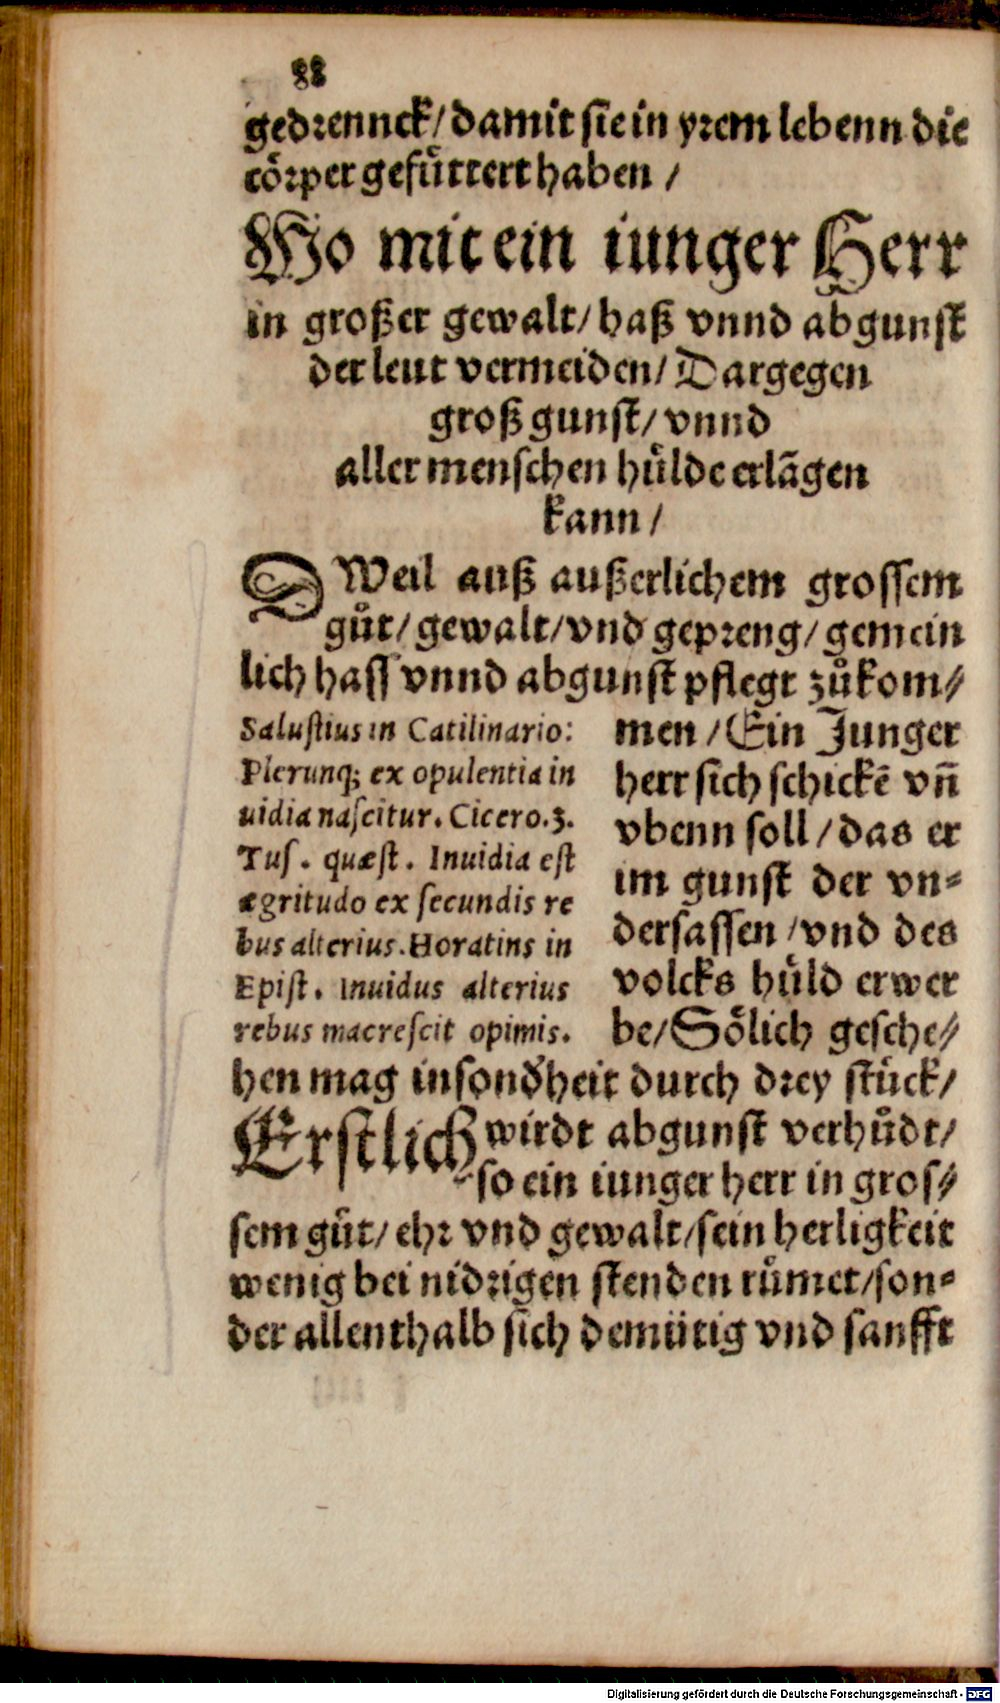 88
gedrennck/ damit sie in yrem lebenn die
cörper gefüttert haben /
Wo mit ein iunger Herr
in großer gewalt/ haß vnnd abgunst
der leut vermeiden/ Dargegen
groß gunst/ vnnd
aller menschen hülde erlãgen
kann /
DWeil auß außerlichem grossem
gůt/ gewalt/ vnd gepreng/ gemein
lich hass vnnd abgunst pflegt zůkom⸗
Salustius in Catilinario:
Plerunq; ex opulentia in
uidia nascitur. Cicero.3.
Tus. quæst. Inuidia est
ægritudo ex secundis re
bus alterius. Horatius in
Epist. Inuidus alterius
rebus macrescit opimis.
men / Ein Junger
herr sich schickẽ vñ
vbenn soll / das er
im gunst der vn⸗
dersassen / vnd des
volcks hůld erwer
be/ Sölich gesche⸗
hen mag insondheit durch drey stück/
Erstlich wirdt abgunst verhůdt/
so ein iunger herr in gros⸗
sem gůt/ ehr vnd gewalt/ sein herligkeit
wenig bei nidrigen stenden růmet/ son⸗
der allenthalb sich demütig vnd sanfft
Digitalisierung gefördert durch die Deutsche Forschungsgemeinschaft - DFG